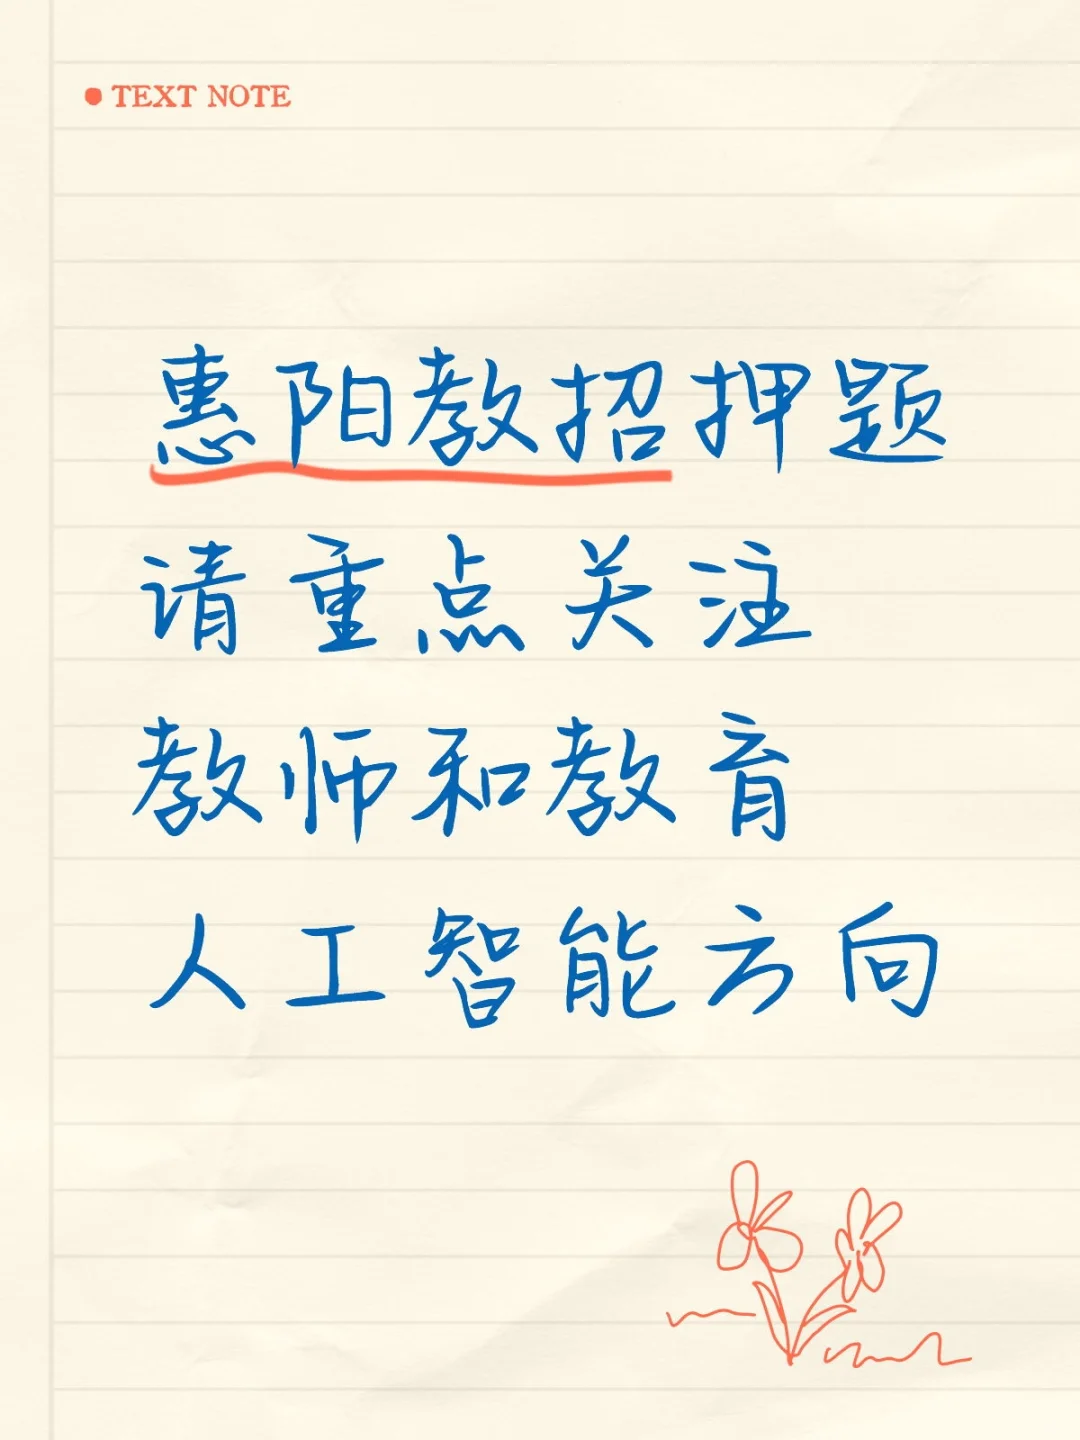 TEXT NOTE
惠阳教招押题
请重点关注
教师和教育
人工智能方向